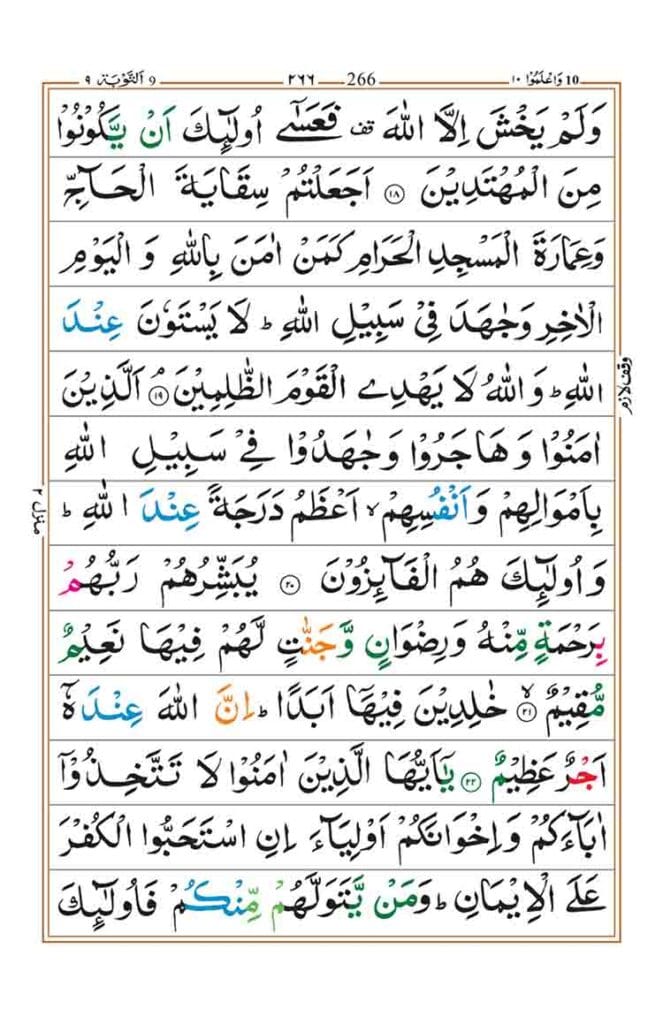 وَاعْلَمُوْٓا ١٠ 10 266 ٢٦٦ اَلتَّوْبَة ٩ 9
وَلَمْ يَخْشَ اِلَّا اللّٰهَ قف فَعَسٰٓى اُولٰٓئِكَ اَنْ يَّكُوْنُوْا
مِنَ الْمُهْتَدِيْنَ ﴿١٨﴾ اَجَعَلْتُمْ سِقَايَةَ الْحَآجِّ
وَعِمَارَةَ الْمَسْجِدِ الْحَرَامِ كَمَنْ اٰمَنَ بِاللّٰهِ وَ الْيَوْمِ
الْاٰخِرِ وَجٰهَدَ فِيْ سَبِيْلِ اللّٰهِ ؕ لَا يَسْتَوٗنَ عِنْدَ
اللّٰهِ ؕ وَ اللّٰهُ لَا يَهْدِى الْقَوْمَ الظّٰلِمِيْنَ ﴿١٩﴾ اَلَّذِيْنَ
وقف لازم
اٰمَنُوْا وَ هَاجَرُوْا وَجٰهَدُوْا فِيْ سَبِيْلِ اللّٰهِ
منزل ٢
بِاَمْوَالِهِمْ وَ اَنْفُسِهِمْ ۙ اَعْظَمُ دَرَجَةً عِنْدَ اللّٰهِ ؕ
وَ اُولٰٓئِكَ هُمُ الْفَآئِزُوْنَ ﴿٢٠﴾ يُبَشِّرُهُمْ رَبُّهُمْ
بِرَحْمَةٍ مِّنْهُ وَرِضْوَانٍ وَّجَنّٰتٍ لَّهُمْ فِيْهَا نَعِيْمٌ
مُّقِيْمٌ ۙ ﴿٢١﴾ خٰلِدِيْنَ فِيْهَاۤ اَبَدًا ؕ اِنَّ اللّٰهَ عِنْدَهٗۤ
اَجْرٌ عَظِيْمٌ ﴿٢٢﴾ يٰۤاَيُّهَا الَّذِيْنَ اٰمَنُوْا لَا تَتَّخِذُوْۤا
اٰبَآءَكُمْ وَ اِخْوَانَكُمْ اَوْلِيَآءَ اِنِ اسْتَحَبُّوا الْكُفْرَ
عَلَى الْاِيْمَانِ ؕ وَمَنْ يَّتَوَلَّهُمْ مِّنْكُمْ فَاُولٰٓئِكَ